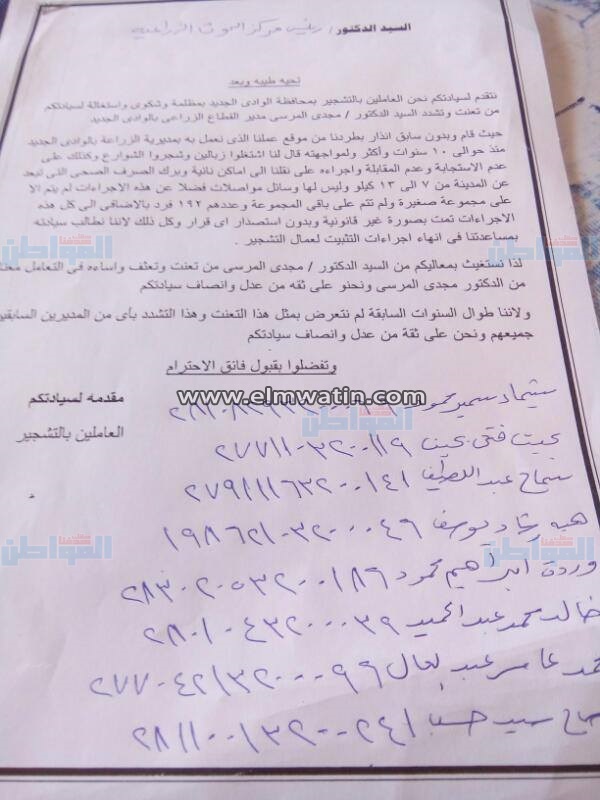 السيد الدكتور / رئيس مركز البحوث الزراعية
تحيه طيبه وبعد
نتقدم لسيادتكم نحن العاملين بالتشجير بمحافظة الوادى الجديد بمظلمة وشكوى واستغاثة لسيادتكم
من تعنت وتشدد السيد الدكتور / مجدى المرسى مدير القطاع الزراعى بالوادى الجديد
حيث قام وبدون سابق انذار بطردنا من موقع عملنا الذى نعمل به بمديرية الزراعة بالوادى الجديد
منذ حوالى ١٠ سنوات وأكثر ولمواجهته قال لنا اشتغلوا زبالين وشجروا الشوارع وكذلك على
عدم الاستجابة وعدم المقابلة واجراءه على نقلنا الى اماكن نائية وبرك الصرف الصحى التى تبعد
عن المدينة من ٧ الى ١٣ كيلو وليس لها وسائل مواصلات فضلا عن هذه الاجراءات لم يتم الا
على مجموعة صغيرة ولم تتم على باقى المجموعة وعددهم ١٩٢ فرد بالاضافى الى كل هذه
الاجراءات تمت بصورة غير قانونية وبدون استصدار اى قرار وكل ذلك لاننا نطالب سيادته
بمساعدتنا فى انهاء اجراءات التثبيت لعمال التشجير .
لذا نستغيث بمعاليكم من السيد الدكتور / مجدى المرسى من تعنت وتعنف واساءه فى التعامل معنا
من الدكتور مجدى المرسى ونحنو على ثقه من عدل وانصاف سيادتكم
ولاننا طوال السنوات السابقة لم نتعرض بمثل هذا التعنت وهذا التشدد بأى من المديرين السابقين
جميعهم ونحن على ثقة من عدل وانصاف سيادتكم
وتفضلوا بقبول فائق الاحترام
www.elmwatin.com
مقدمه لسيادتكم
العاملين بالتشجير
شيماء سمير محمود
بخيت فتحى بخيت ٢٧٧١١٠٣٢٠٠١١٩
سماح عبد اللطيف ٢٧٩١١١٦٣٢٠٠١٤١
هبه رشاد يوسف ١٩٨٦٢١٠٣٢٠٠٠٤٦
وردة ابراهيم محمود ٢٨٣٠٢٠٥٣٢٠٠١٨٦
خالد محمد عبد الحميد ٢٨٠١٠٤٣٢٠٠٠٣٩
عامر عبد العال ٢٧٧٠٤٢١٣٢٠٠٠٩٦
سيد ٢٨١١٠٠١٣٢٠٠٢٤١
المواطن